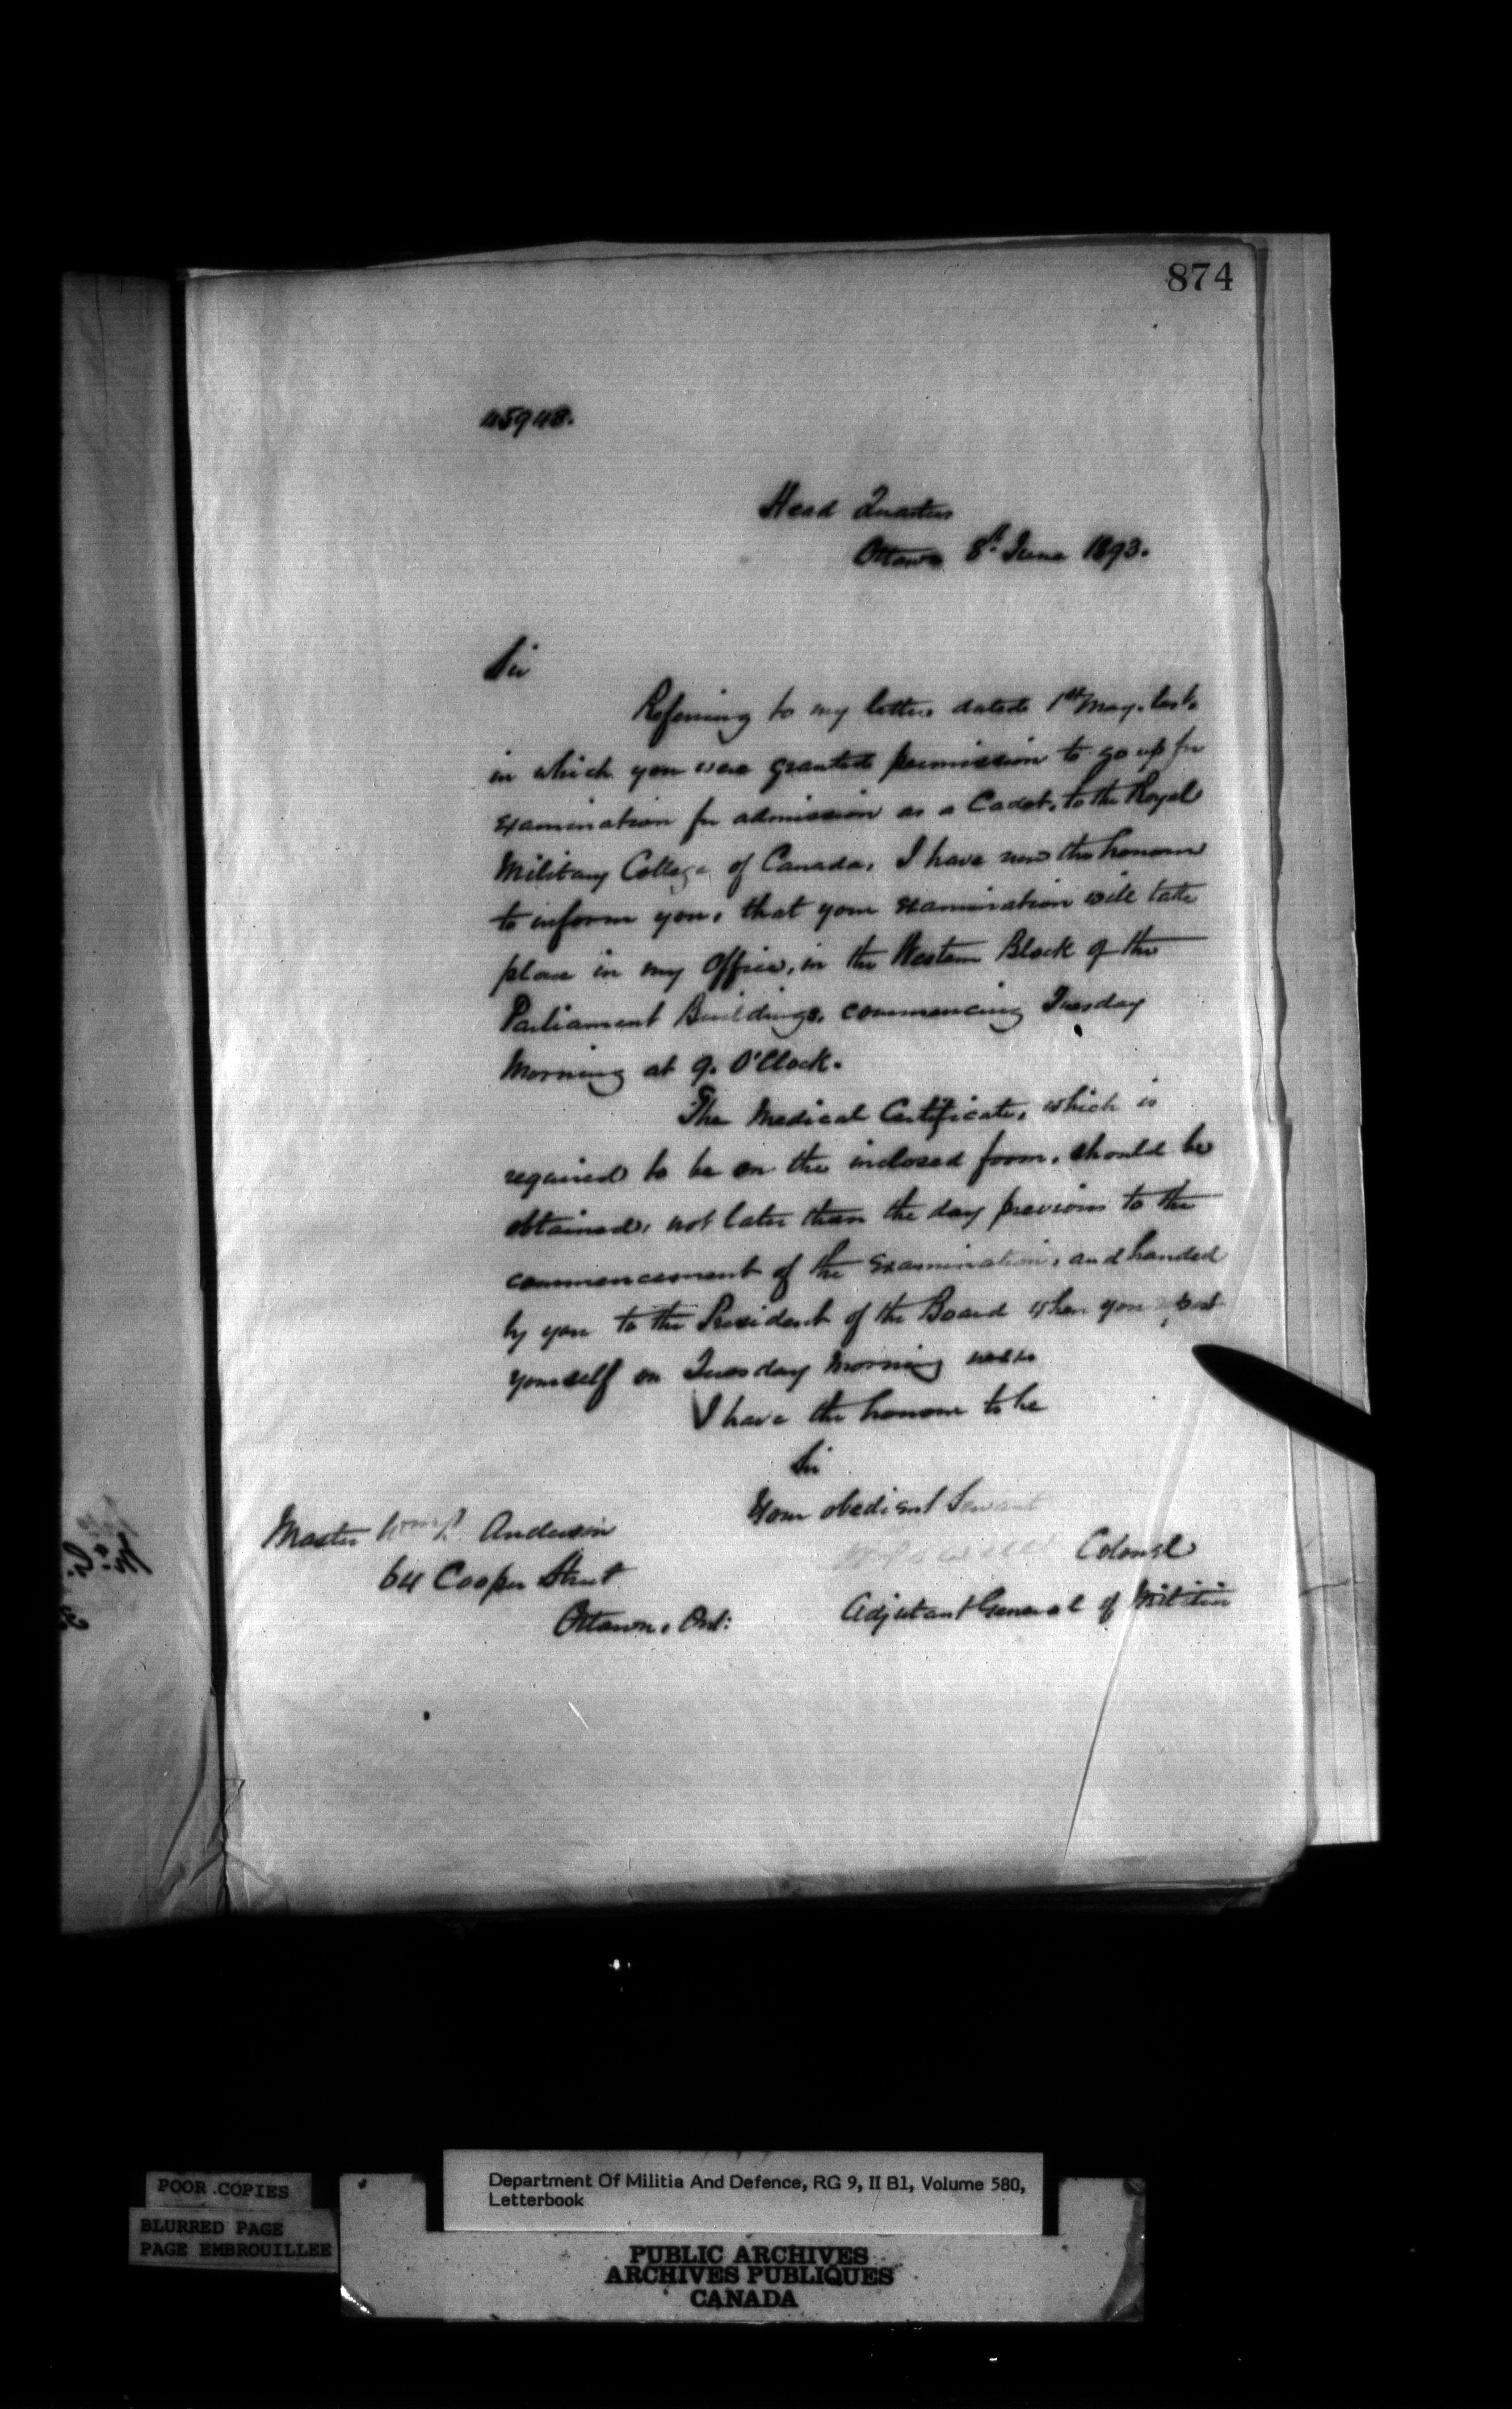 874
45948.
Head Quarters
Ottawa 8th June 1893.
Sir
Referring to my letter dated 1st May. last.
in which you were granted permission to go up for
examination for admission as a Cadet, to the Royal
Military College of Canada, I have now the honour
to inform you, that your examination will take
place in my Office, in the Western Block of the
Parliament Buildings, commencing Tuesday
Morning at 9. O'Clock.
The Medical Certificate, which is
required to be on the inclosed form, should be
obtained, not later than the day previous to the
commencement of the Examination, and handed
by you to the President of the Board when you
yourself on Tuesday Morning next
I have the honour to be
Sir
Your obedient Servant
Colonel
Adjutant General of Militia
Master Wm P. Anderson
64 Cooper Street
Ottawa, Ont:
POOR COPIES
BLURRED PAGE
PAGE EMBROUILLEE
Department Of Militia And Defence, RG 9, II B1, Volume 580,
Letterbook
PUBLIC ARCHIVES
ARCHIVES PUBLIQUES
CANADA